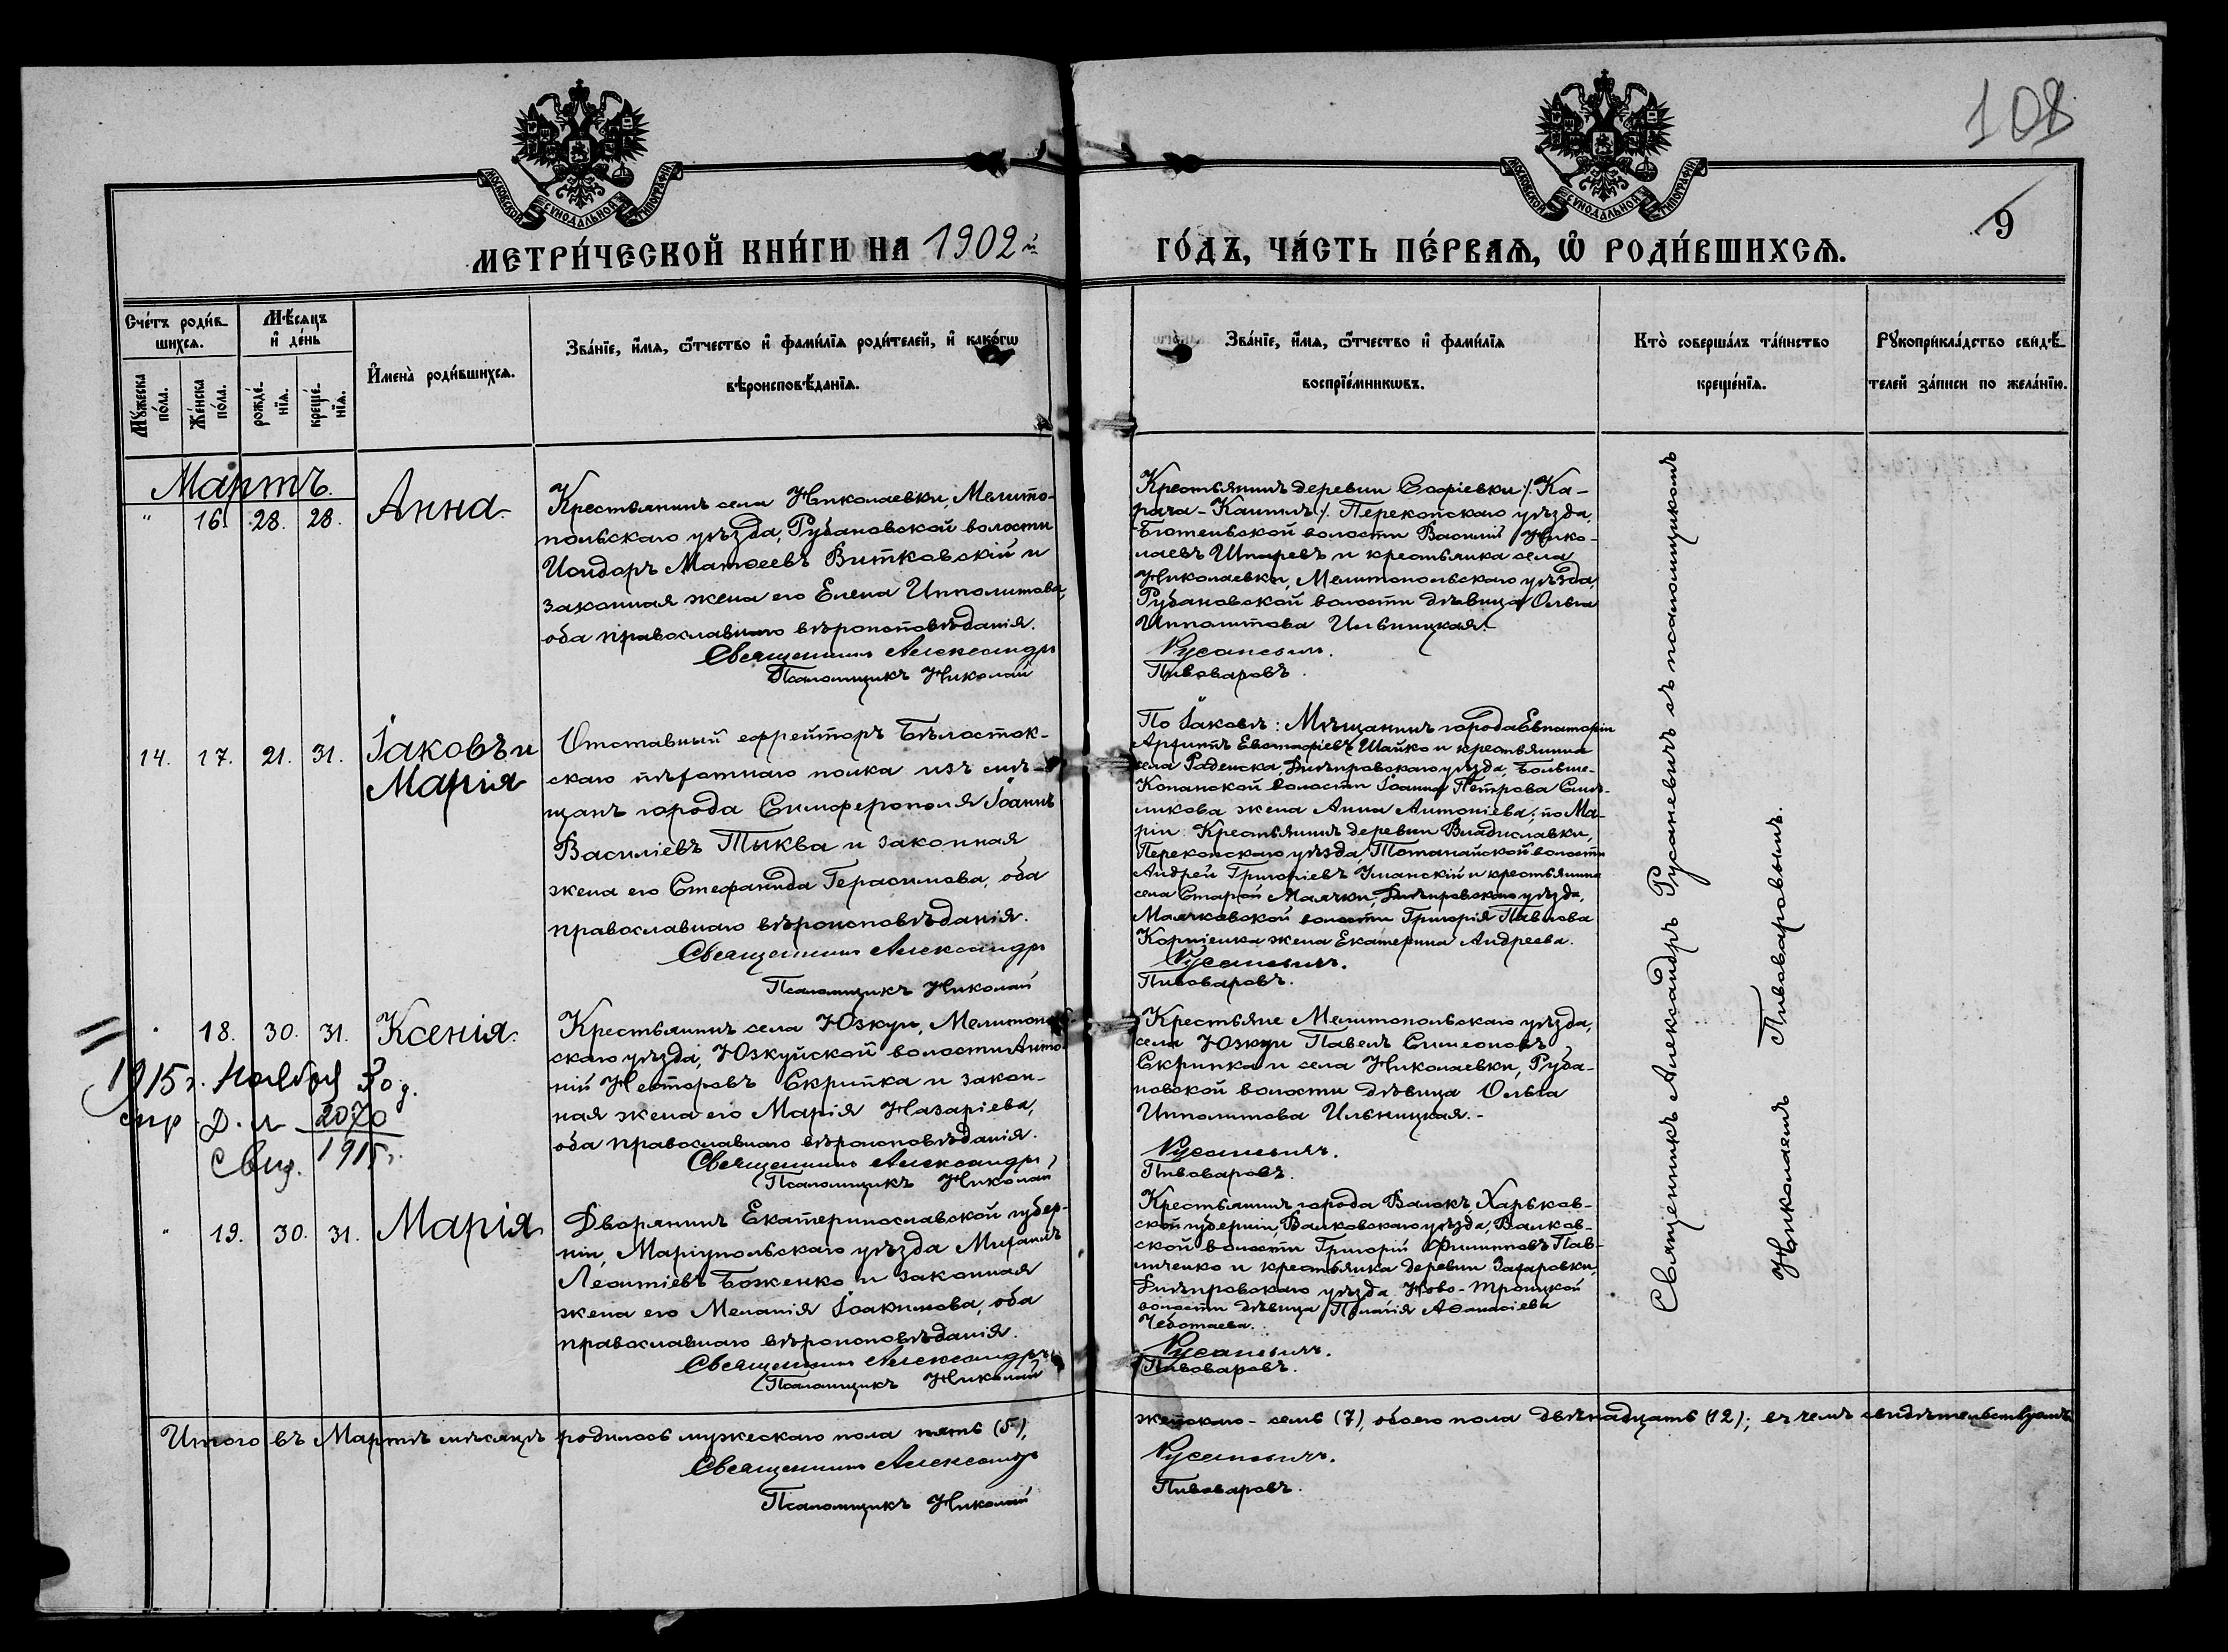 108
9
МОСКОВСКОЙ СѴНОДАЛЬНОЙ ТИПОГРАФІИ
МОСКОВСКОЙ СѴНОДАЛЬНОЙ ТИПОГРАФІИ
МЕТРИ́ЧЕСКОЙ КНИ́ГИ НА 1902 й
ГО́ДЪ, ЧА́СТЬ ПЕ́РВАѦ, Ѡ҆ РОДИ́ВШИХСѦ.
Сче́тъ роди́в-
шихсѧ.
Мѣ́сяцъ
и҆ де́нь
Мꙋ́жеска
по́ла.
Же́нска
по́ла.
рожде́-
нїѧ.
креще́-
нїѧ.
И҆мена̀ роди́вшихсѧ.
Зва́нїе, и҆́мѧ, ѻ҆́тчество и҆ фами́лїѧ роди́телей, и҆ како́гѡ
вѣроисповѣ́данїѧ.
Зва́нїе, и҆́мѧ, ѻ҆́тчество и҆ фами́лїѧ
воспрїе́мникѡвъ.
Кто̀ соверша́лъ та́инство
креще́нїѧ.
Рꙋкоприкла́дство свидѣ́-
телей за́писи по жела́нїю.
Мартъ.
" 16. 28. 28. Анна.
Крестьянинъ села Николаевки, Мелито-
польскаго уѣзда, Рубановской волости
Исидоръ Матѳеевъ Витковскій и
законная жена его Елена Ипполитова,
оба православнаго вѣроисповѣданія.
Священникъ Александръ
Псаломщикъ Николай
Крестьянинъ деревни Софіевки /: Ка-
рача-Каннкъ /. Перекопскаго уѣзда,
Бютеньской волости Василій Нико-
лаевъ и крестьянка села
Николаевки, Мелитопольскаго уѣзда,
Рубановской волости дѣвица Ольга
Ипполитова Ильницкая.
Русаневичъ.
Пивоваровъ.
14. 17. 21. 31. Іаковъ и
Марія
Отставный ефрейторъ Бѣлосток-
скаго пѣхотнаго полка изъ мѣ-
щанъ города Симферополя Іоаннъ
Василіевъ Тыква и законная
жена его Стефанида Герасимова, оба
православнаго вѣроисповѣданія.
Священникъ Александръ
Псаломщикъ Николай
По Іаковѣ: Мѣщанинъ города Евпаторіи
Евстафіевъ Шайко и крестьянина
села Раденска, Днѣпровскаго уѣзда, Больше-
Копанской волости Іоанна Петрова
жена Анна Антоніева; по Ма-
ріи: Крестьянинъ деревни Владиславки,
Перекопскаго уѣзда, Тотанайской волости
Андрей Григоріевъ Уманскій и крестьянина
села Старой Маячки, Днѣпровскаго уѣзда,
Маячковской волости Григорія Павлова
Корніенка жена Екатерина Андреева.
Русаневичъ.
Пивоваровъ.
" 18. 30. 31. Ксенія.
1915 г. Ноября 30 д.
2070
1915 г.
Крестьянинъ села Юзкуи, Мелитополь-
скаго уѣзда, Юзкуйской волости Анто-
ній Несторовъ Скрипка и закон-
ная жена его Марія Назаріева,
оба православнаго вѣроисповѣданія.
Священникъ Александръ
Псаломщикъ Николай
Крестьяне Мелитопольскаго уѣзда,
села Юзкуи Павелъ Симеоновъ
Скрипка и села Николаевки, Руба-
новской волости дѣвица Ольга
Ипполитова Ильницкая.-
Русаневичъ.
Пивоваровъ.
" 19. 30. 31. Марія
Дворянинъ Екатеринославской губер-
ніи, Маріупольскаго уѣзда Михаилъ
Леонтіевъ Боженко и законная
жена его Меланія Іоакимова, оба
православнаго вѣроисповѣданія.
Священникъ Александръ
Псаломщикъ Николай
Крестьянинъ города Валокъ, Харьков-
ской губерніи, Валковскаго уѣзда, Валков-
ской волости Григорій Филипповъ Пав-
личенко и крестьянка деревни Захаровки,
Днѣпровскаго уѣзда Ново-Троицкой
волости дѣвица Пелагія Аѳанасіева
Чеботаева.
Русаневичъ.
Пивоваровъ.
Священникъ Александръ Русаневичъ съ псаломщикомъ
Николаемъ Пивоваровымъ.
Итого въ Мартѣ мѣсяцѣ родилось мужескаго пола пять (5),
женскаго - семь (7), обоего пола двѣнадцать (12); въ чемъ свидѣтельствуемъ
Священникъ Александръ
Русаневичъ.
Псаломщикъ Николай
Пивоваровъ.